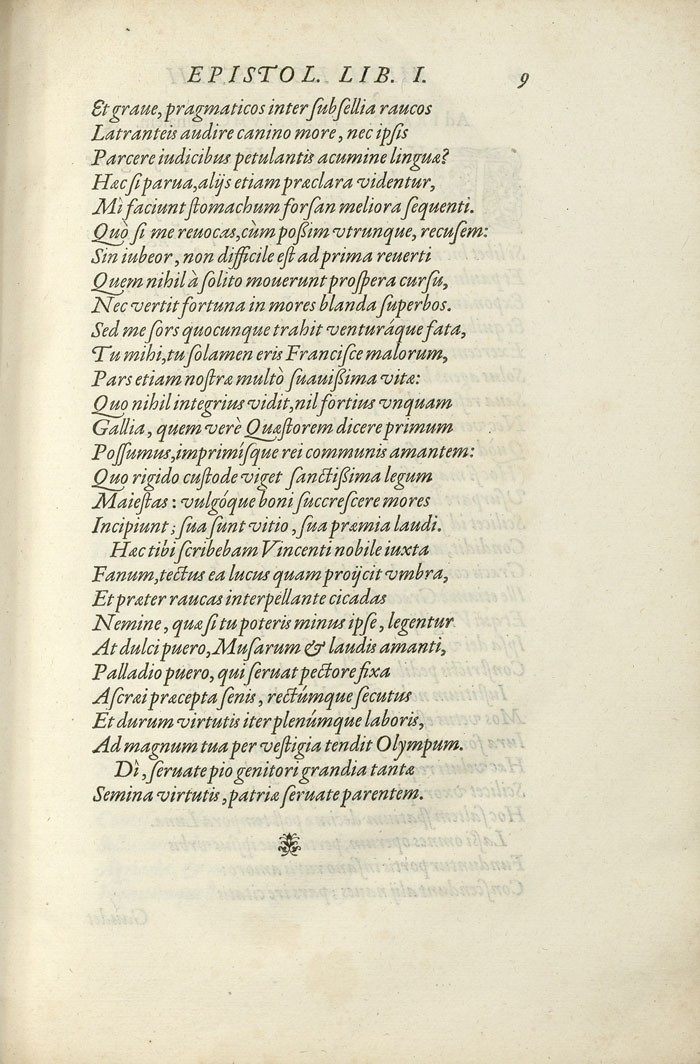 EPISTOL. LIB. I. 9
Et graue, pragmaticos inter subsellia raucos
Latranteis audire canino more, nec ipsis
Parcere iudicibus petulantis acumine linguæ?
Hæc si parua, alijs etiam præclara videntur,
Mì faciunt stomachum forsan meliora sequenti.
Quò si me reuocas, cùm possim vtrunque, recusem:
Sin iubeor, non difficile est ad prima reuerti
Quem nihil à solito mouerunt prospera cursu,
Nec vertit fortuna in mores blanda superbos.
Sed me sors quocunque trahit venturáque fata,
Tu mihi, tu solamen eris Francisce malorum,
Pars etiam nostræ multò suauissima vitæ:
Quo nihil integrius vidit, nil fortius vnquam
Gallia, quem verè Quæstorem dicere primum
Possumus, imprimísque rei communis amantem:
Quo rigido custode viget sanctissima legum
Maiestas: vulgóque boni succrescere mores
Incipiunt; sua sunt vitio, sua præmia laudi.
Hæc tibi scribebam Vincenti nobile iuxta
Fanum, tectus ea lucus quam proijcit vmbra,
Et præter raucas interpellante cicadas
Nemine, quæ si tu poteris minus ipse, legentur
At dulci puero, Musarum & laudis amanti,
Palladio puero, qui seruat pectore fixa
Ascræi præcepta senis, rectúmque secutus
Et durum virtutis iter plenúmque laboris,
Ad magnum tua per vestigia tendit Olympum.
Dì, seruate pio genitori grandia tantæ
Semina virtutis, patriæ seruate parentem.